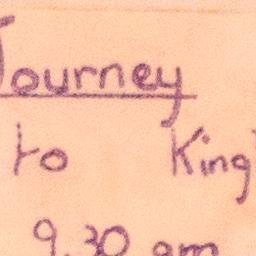 Journey
to King'
9.30 am